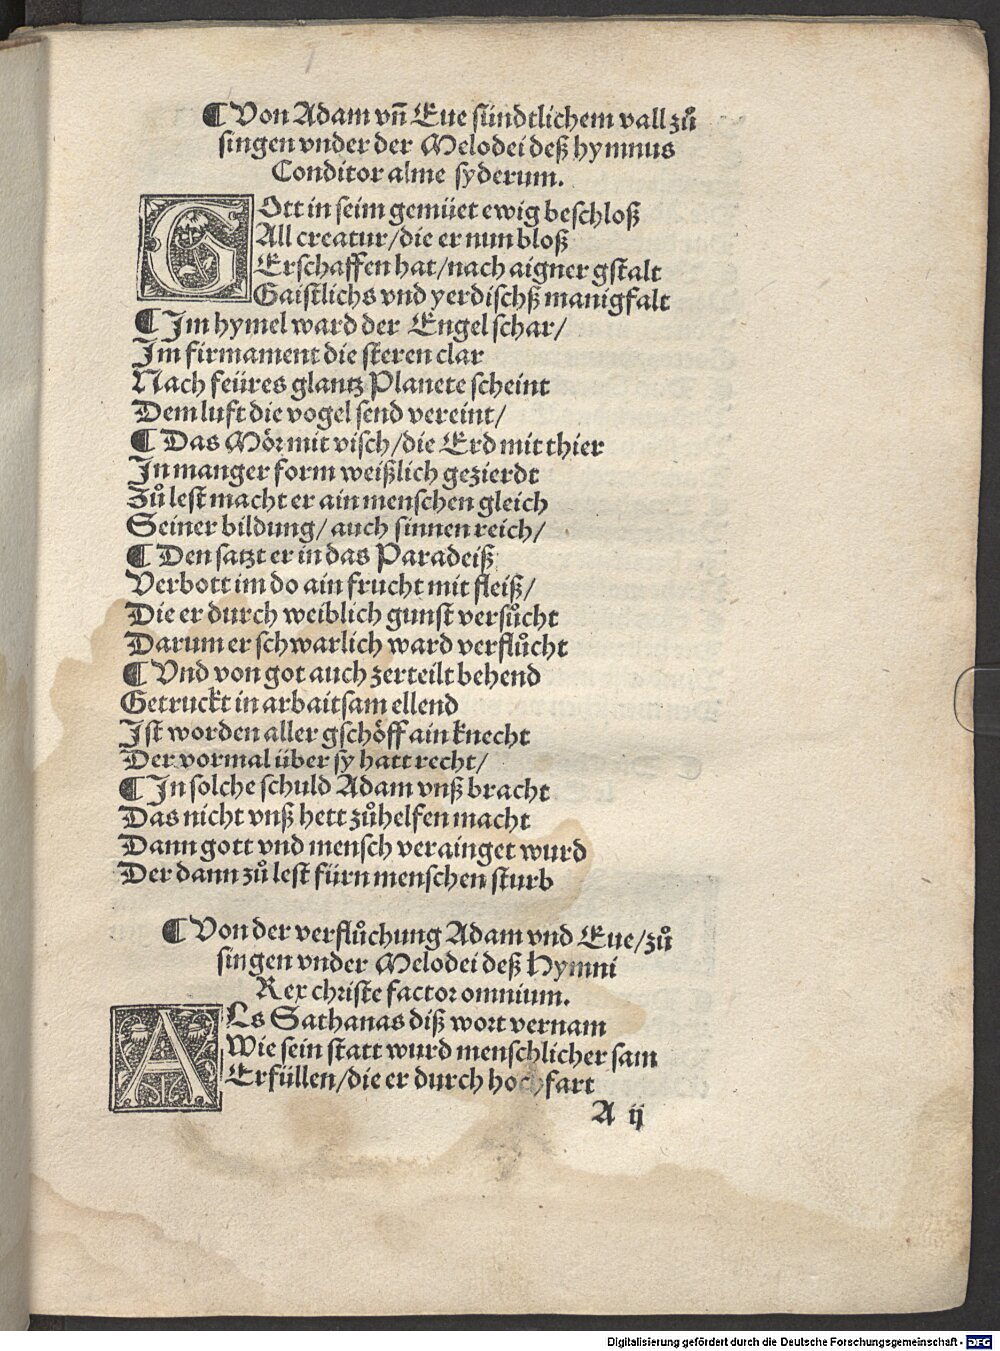 ¶ Von Adam vn̄ Eue sündtlichem vall zů
singen vnder der Melodei deß hymnus
Conditor alme syderum.
GOtt in seim gemüet ewig beschloß
All creatur/die er nun bloß
Erschaffen hat/nach aigner gstalt
Gaistlichs vnd yerdischß manigfalt
¶ Im hymel ward der Engel schar/
Im firmament die steren clar
Nach feüres glantz Planete scheint
Dem luft die vogel send vereint/
¶ Das Mör mit visch/die Erd mit thier
In manger form weißlich gezierdt
Zů lest macht er ain menschen gleich
Seiner bildung/ auch sinnen reich/
¶ Den satzt er in das Paradeiß
Verbott im do ain frucht mit fleiß/
Die er durch weiblich gunst versůcht
Darum er schwarlich ward verflůcht
¶ Vnd von got auch zerteilt behend
Getruckt in arbaitsam ellend
Ist worden aller gschöff ain knecht
Der vormal über sy hatt recht/
¶ In solche schuld Adam vnß bracht
Das nicht vnß hett zůhelfen macht
Dann gott vnd mensch verainget wurd
Der dann zů lest fürn menschen sturb
¶ Von der verflůchung Adam vnd Eue/zů
singen vnder Melodei deß Hymni
Rex christe factor omnium.
ALs Sathanas diß wort vernam
Wie sein statt wurd menschlicher sam
Erfüllen/die er durch hochfart
A ij
Digitalisierung gefördert durch die Deutsche Forschungsgemeinschaft - DFG